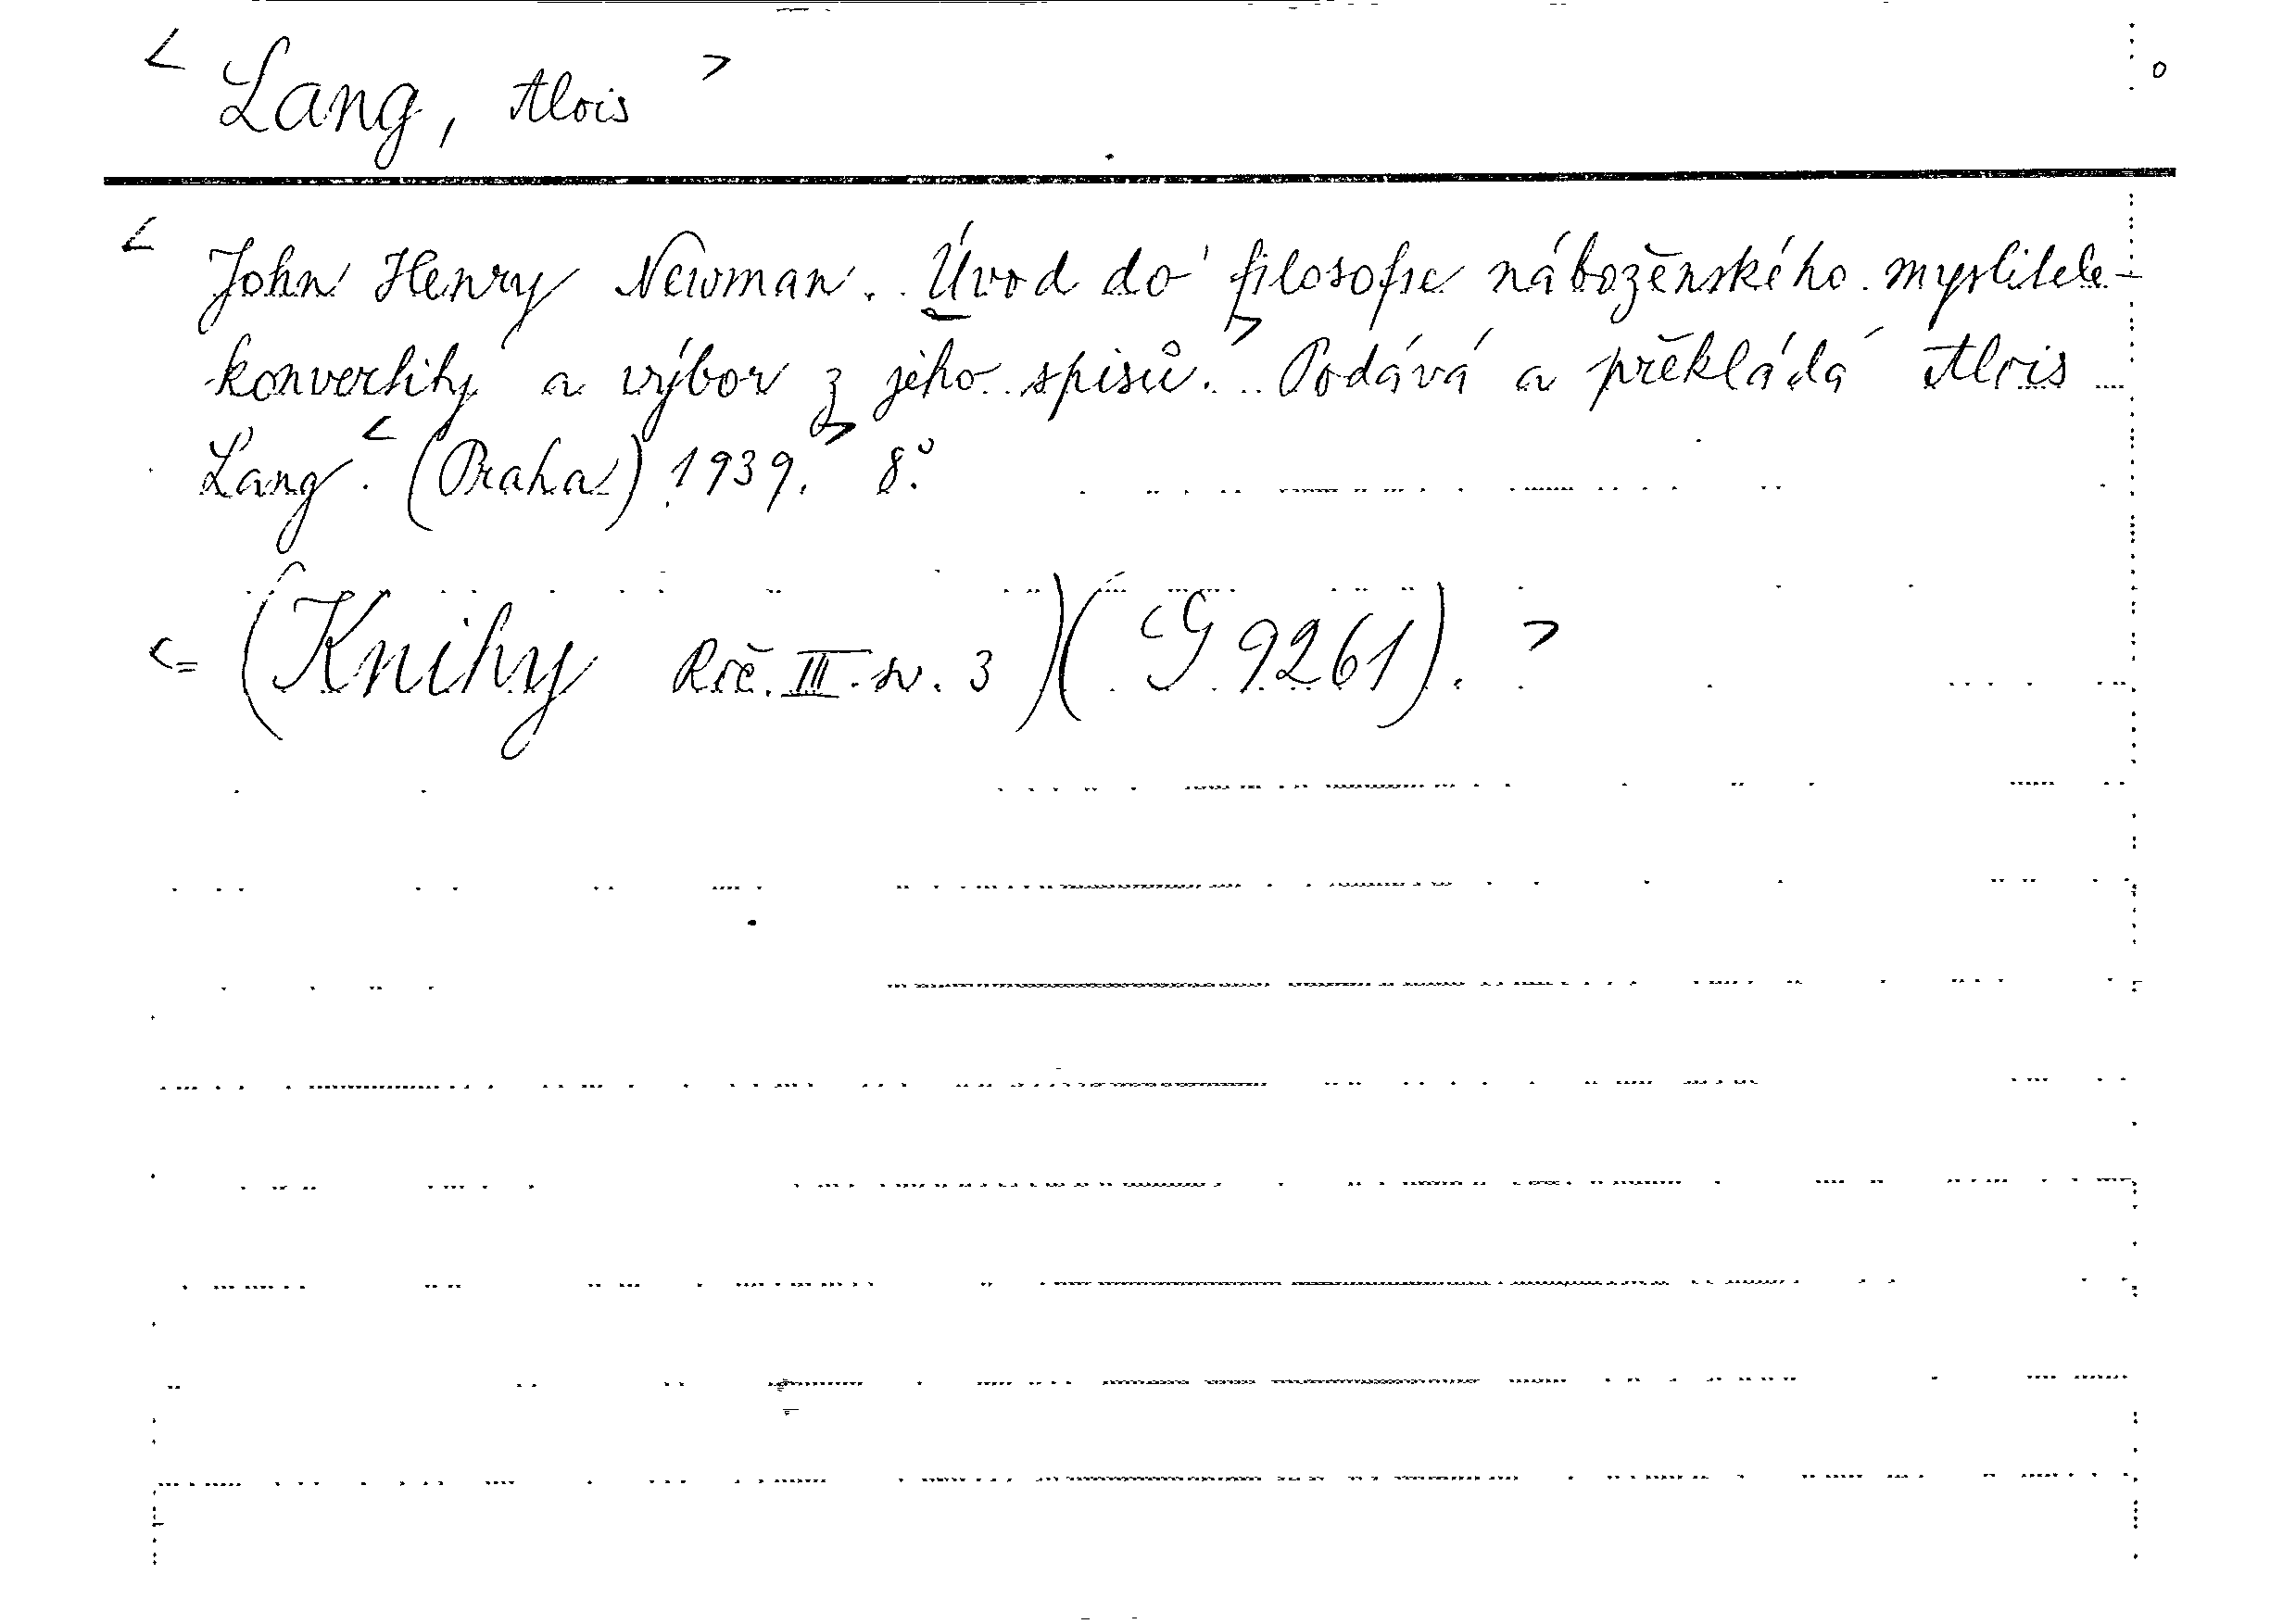 < Lang, Alois >
< John Henry Newman. Úvod do filosofie náboženského myslitele-
konvertity a výbor z jeho spisů.> Podává a překládá Alois
Lang. <(Praha) 1939.> 8°.
<= (Knihy Roč. III. sv. 3)( G 9261). >